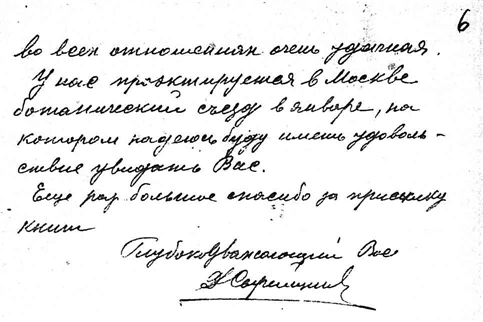 6
во всех отношениях очень удачная.
У нас проэктируется в Москве
ботанический съезд в январе, на
котором надеюсь буду иметь удоволь-
ствие увидать Вас.
Еще раз большое спасибо за присылку
книги
Глубокоуважающий Вас